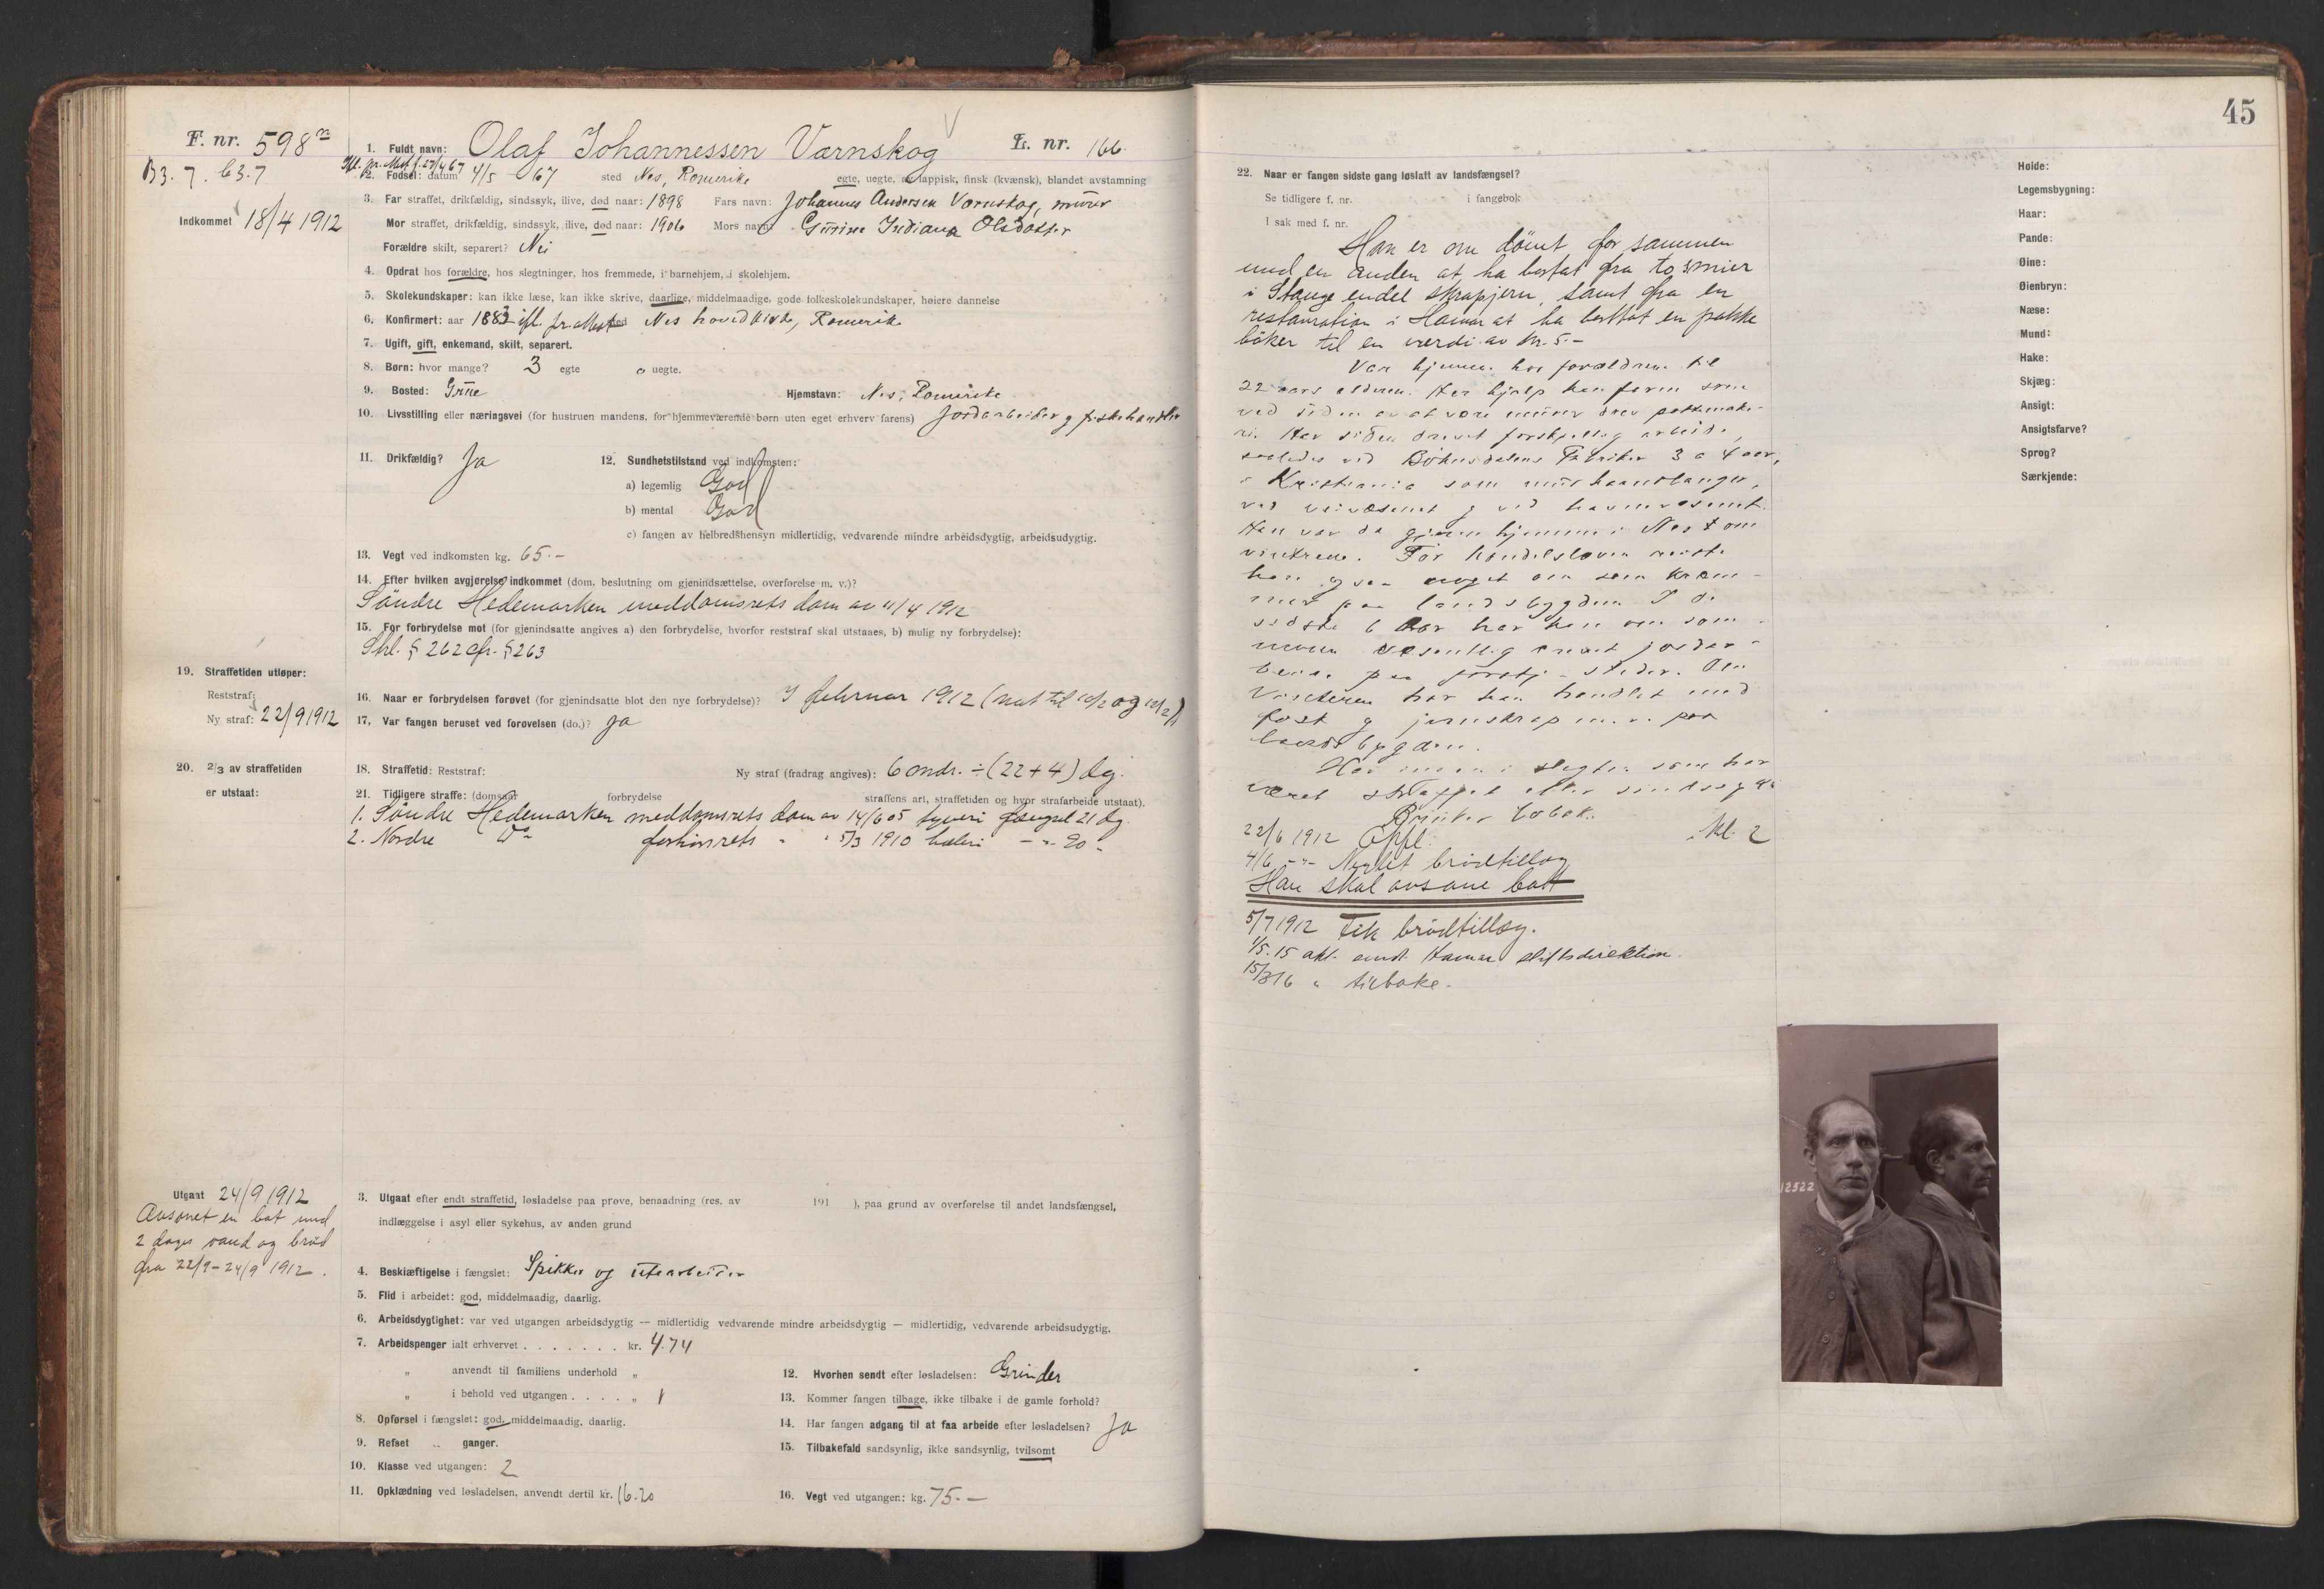 F. nr. 598
B3. 7. 63.7
Indkommet 18/4 1912
1. Fuldt navn: Olaf Johannessen Varnskog L. nr. 166.
2. Fødsel: datum 4/5 - 67 sted Nes, Romerike egte, uegte, av lappisk, finsk (kvænsk), blandet avstamning
3. Far straffet, drikfældig, sindssyk, ilive, død naar: 1898 Fars navn: Johannes Andersen Varnskog, murer
Mor straffet, drikfældig, sindssyk, ilive, død naar: 1906 Mors navn: Indiana Olsdatter
Forældre skilt, separert? Nei
4. Opdrat hos forældre, hos slegtninger, hos fremmede, i barnehjem, i skolehjem.
5. Skolekundskaper: kan ikke læse, kan ikke skrive, daarlige, middelmaadige, gode folkeskolekundskaper, høiere dannelse
6. Konfirmert: aar 1883 ifl. pr. sted Nes hovedkirke, Romerike
7. Ugift, gift, enkemand, skilt, separert.
8. Børn: hvor mange? 3 egte o uegte.
9. Bosted: Grue Hjemstavn: Nes, Romerike
10. Livsstilling eller næringsvei (for hustruen mandens, for hjemmeværende børn uten eget erhverv farens) Jordarbeider og fiskehandler
11. Drikfældig? Ja
12. Sundhetstilstand ved indkomsten:
a) legemlig God
b) mental God
c) fangen av helbredshensyn midlertidig, vedvarende mindre arbeidsdygtig, arbeidsudygtig.
13. Vegt ved indkomsten kg. 65.-
14. Efter hvilken avgjørelse indkommet (dom, beslutning om gjenindsættelse, overførelse m. v.)?
Söndre Hedemarken meddomsrets dom av 11/4 1912
15. For forbrydelse mot (for gjenindsatte angives a) den forbrydelse, hvorfor reststraf skal utstaaes, b) mulig ny forbrydelse):
Strl. § 262 cfr. § 263
19. Straffetiden utløper:
Reststraf:
Ny straf: 22/9 1912
16. Naar er forbrydelsen forøvet (for gjenindsatte blot den nye forbrydelse)? I februar 1912 (nat til 10/2 og 12/2)
17. Var fangen beruset ved forøvelsen (do.)? Ja
20. 2/3 av straffetiden
er utstaat:
18. Straffetid: Reststraf: Ny straf (fradrag angives): 6 mdr. ÷ (22 + 4) dg.
21. Tidligere straffe: (domsaar forbrydelse straffens art, straffetiden og hvor strafarbeide utstaat).
1. Söndre Hedemarken meddomsrets dom av 14/6 05 tyveri fængsel 21 dg.
2. Nordre Do forhörsrets " " 5/3 1910 hæleri - " - 20 -
Utgaat 24/9 1912
Avsonet en bot med
2 dages vand og bröd
fra 22/9 - 24/9 1912.
3. Utgaat efter endt straffetid, løsladelse paa prøve, benaadning (res. av 191 ), paa grund av overførelse til andet landsfængsel,
indlæggelse i asyl eller sykehus, av anden grund
4. Beskjæftigelse i fængslet: Spikker og utearbeider
5. Flid i arbeidet: god, middelmaadig, daarlig.
6. Arbeidsdygtighet: var ved utgangen arbeidsdygtig — midlertidig vedvarende mindre arbeidsdygtig — midlertidig, vedvarende arbeidsudygtig.
7. Arbeidspenger ialt erhvervet . . . . . . . kr. 4.74
" anvendt til familiens underhold "
" i behold ved utgangen . . . . "
8. Opførsel i fængslet: god, middelmaadig, daarlig.
9. Refset ganger.
10. Klasse ved utgangen: 2
11. Opklædning ved løsladelsen, anvendt dertil kr. 16.20
12. Hvorhen sendt efter løsladelsen: Grinder
13. Kommer fangen tilbage, ikke tilbake i de gamle forhold?
14. Har fangen adgang til at faa arbeide efter løsladelsen? Ja
15. Tilbakefald sandsynlig, ikke sandsynlig, tvilsomt
16. Vegt ved utgangen: kg. 75.-
45
22. Naar er fangen sidste gang løslatt av landsfængsel?
Se tidligere f. nr. i fangebok
I sak med f. nr.
Han er nu dömt for sammen
med en anden at ha bortat fra to smier
i Stange endel skrapjern, samt fra en
restauration i Hamar at ha borttat en pakke
böker til en værdi av kr. 5.-
Var hjemme hos forældrene til
22 aars alderen. Her hjalp han faren som
ved siden av at være murer drev pottemake-
ri. Har siden drevet forskjellig arbeide,
saaledes ved Böhnsdalens Fabriker 3 a 4 aar,
i Kristiania som murhaandlanger,
ved veivæsenet og ved havnevæsenet.
Han var da gjerne hjemme i Nes om
vintrene. Før handelsloven reiste
han ogsaa noget om som kræm-
mer paa landsbygden. I de
sidste 6 aar har han om som-
meren væsentlig drevet jordar-
beide paa forskj. steder. Om
vinteren har han handlet med
fisk og jernskrap m. v. paa
landsbygden.
Har ingen i slegten som har
været straffet eller sindssyge.
Bruker tobak.
22/6 1912 Opfl. kl. 2
4/6 - " - Negtet brödtillæg
Han skal avsone bot
5/7 1912 Fik brödtillæg.
1/5. 15 akt. sendt Hamar stiftsdirektion.
15/3 16 " tilbake.
Høide:
Legemsbygning:
Haar:
Pande:
Øine:
Øienbryn:
Næse:
Mund:
Hake:
Skjæg:
Ansigt:
Ansigtsfarve?
Sprog?
Særkjende:
12522